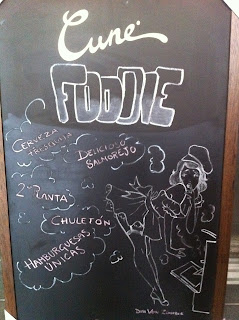 Cune
FOODIE
CERVEZA
DELICIOSO
SALMOREJO
2ª PLANTA
CHULETÓN
HAMBURGUESAS
ÚNICAS